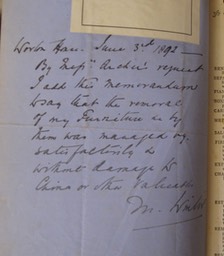 June 3rd 1892
By Messrs Archer's request
I add this Memorandum
to say that the removal
of my Furniture by
them was managed
satisfactorily &
without damage to
China or other Valuables